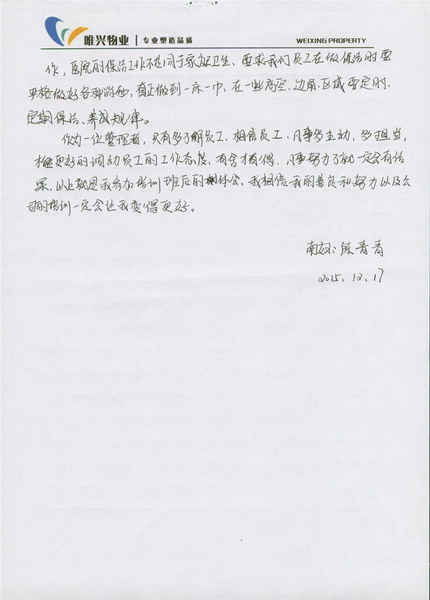 唯兴物业 专业塑造品质 WEIXING PROPERTY
作，医院的保洁工作不同于家庭卫生，要求我们员工在做保洁时要
严格做好各种消毒，真正做到一床一巾，在一些高空、边角区域要定时、
定期保洁，养成规律。
作为一位管理者，只有多了解员工，相信员工，凡事多主动，多担当，
才能更好的调动员工的工作态度，有舍才有得，凡事努力了就一定会有结
果，以上就是我参加培训班后的体会，我相信我的善良和努力以及公
司的培训一定会让我变得更好。
青青
2015.12.17